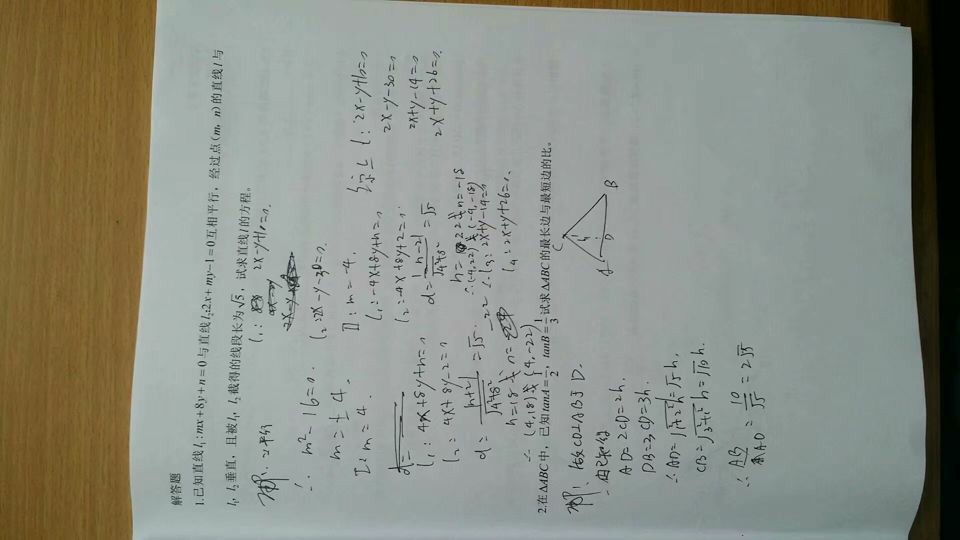 解答题
1.已知直线l₁:mx+8y+n=0与直线l₂:2x+my-1=0互相平行，经过点(m，n)的直线l与
l₁，l₂垂直，且被l₁，l₂截得的线段长为√5，试求直线l的方程。
解：∵平行
∴ m²-16=0.
m=±4
I: m=4.
l₁: 4x+8y+n=0
l₂: 4x+8y-2=0
d=|n+2|/√(4²+8²)=√5.
n=18或n=-22
∴(4,18)或(4,-22)
l₁: 2x-y+10=0.
l₂: 2x-y-30=0.
II: m=-4.
l₁: -4x+8y+n=0
l₂: -4x+8y+2=0.
d=|n-2|/√(4²+8²)=√5
n=22或n=-18
∴(-4,22)或(-4,-18)
∴l₃: 2x+y-14=0
l₄: 2x+y+26=0.
综上 l: 2x-y+10=0
2x-y-30=0
2x+y-14=0
2x+y+26=0.
2.在△ABC中，已知tanA=1/2，tanB=1/3试求△ABC的最长边与最短边的比。
解：做CD⊥AB于D.
由已知得
AD=2CD=2h.
DB=3CD=3h.
∴AD=√(1²+2²)h=√5h,
CB=√(3²+1²)h=√10h.
∴AB/AD=10/√5=2√5
C
A
D
B
h